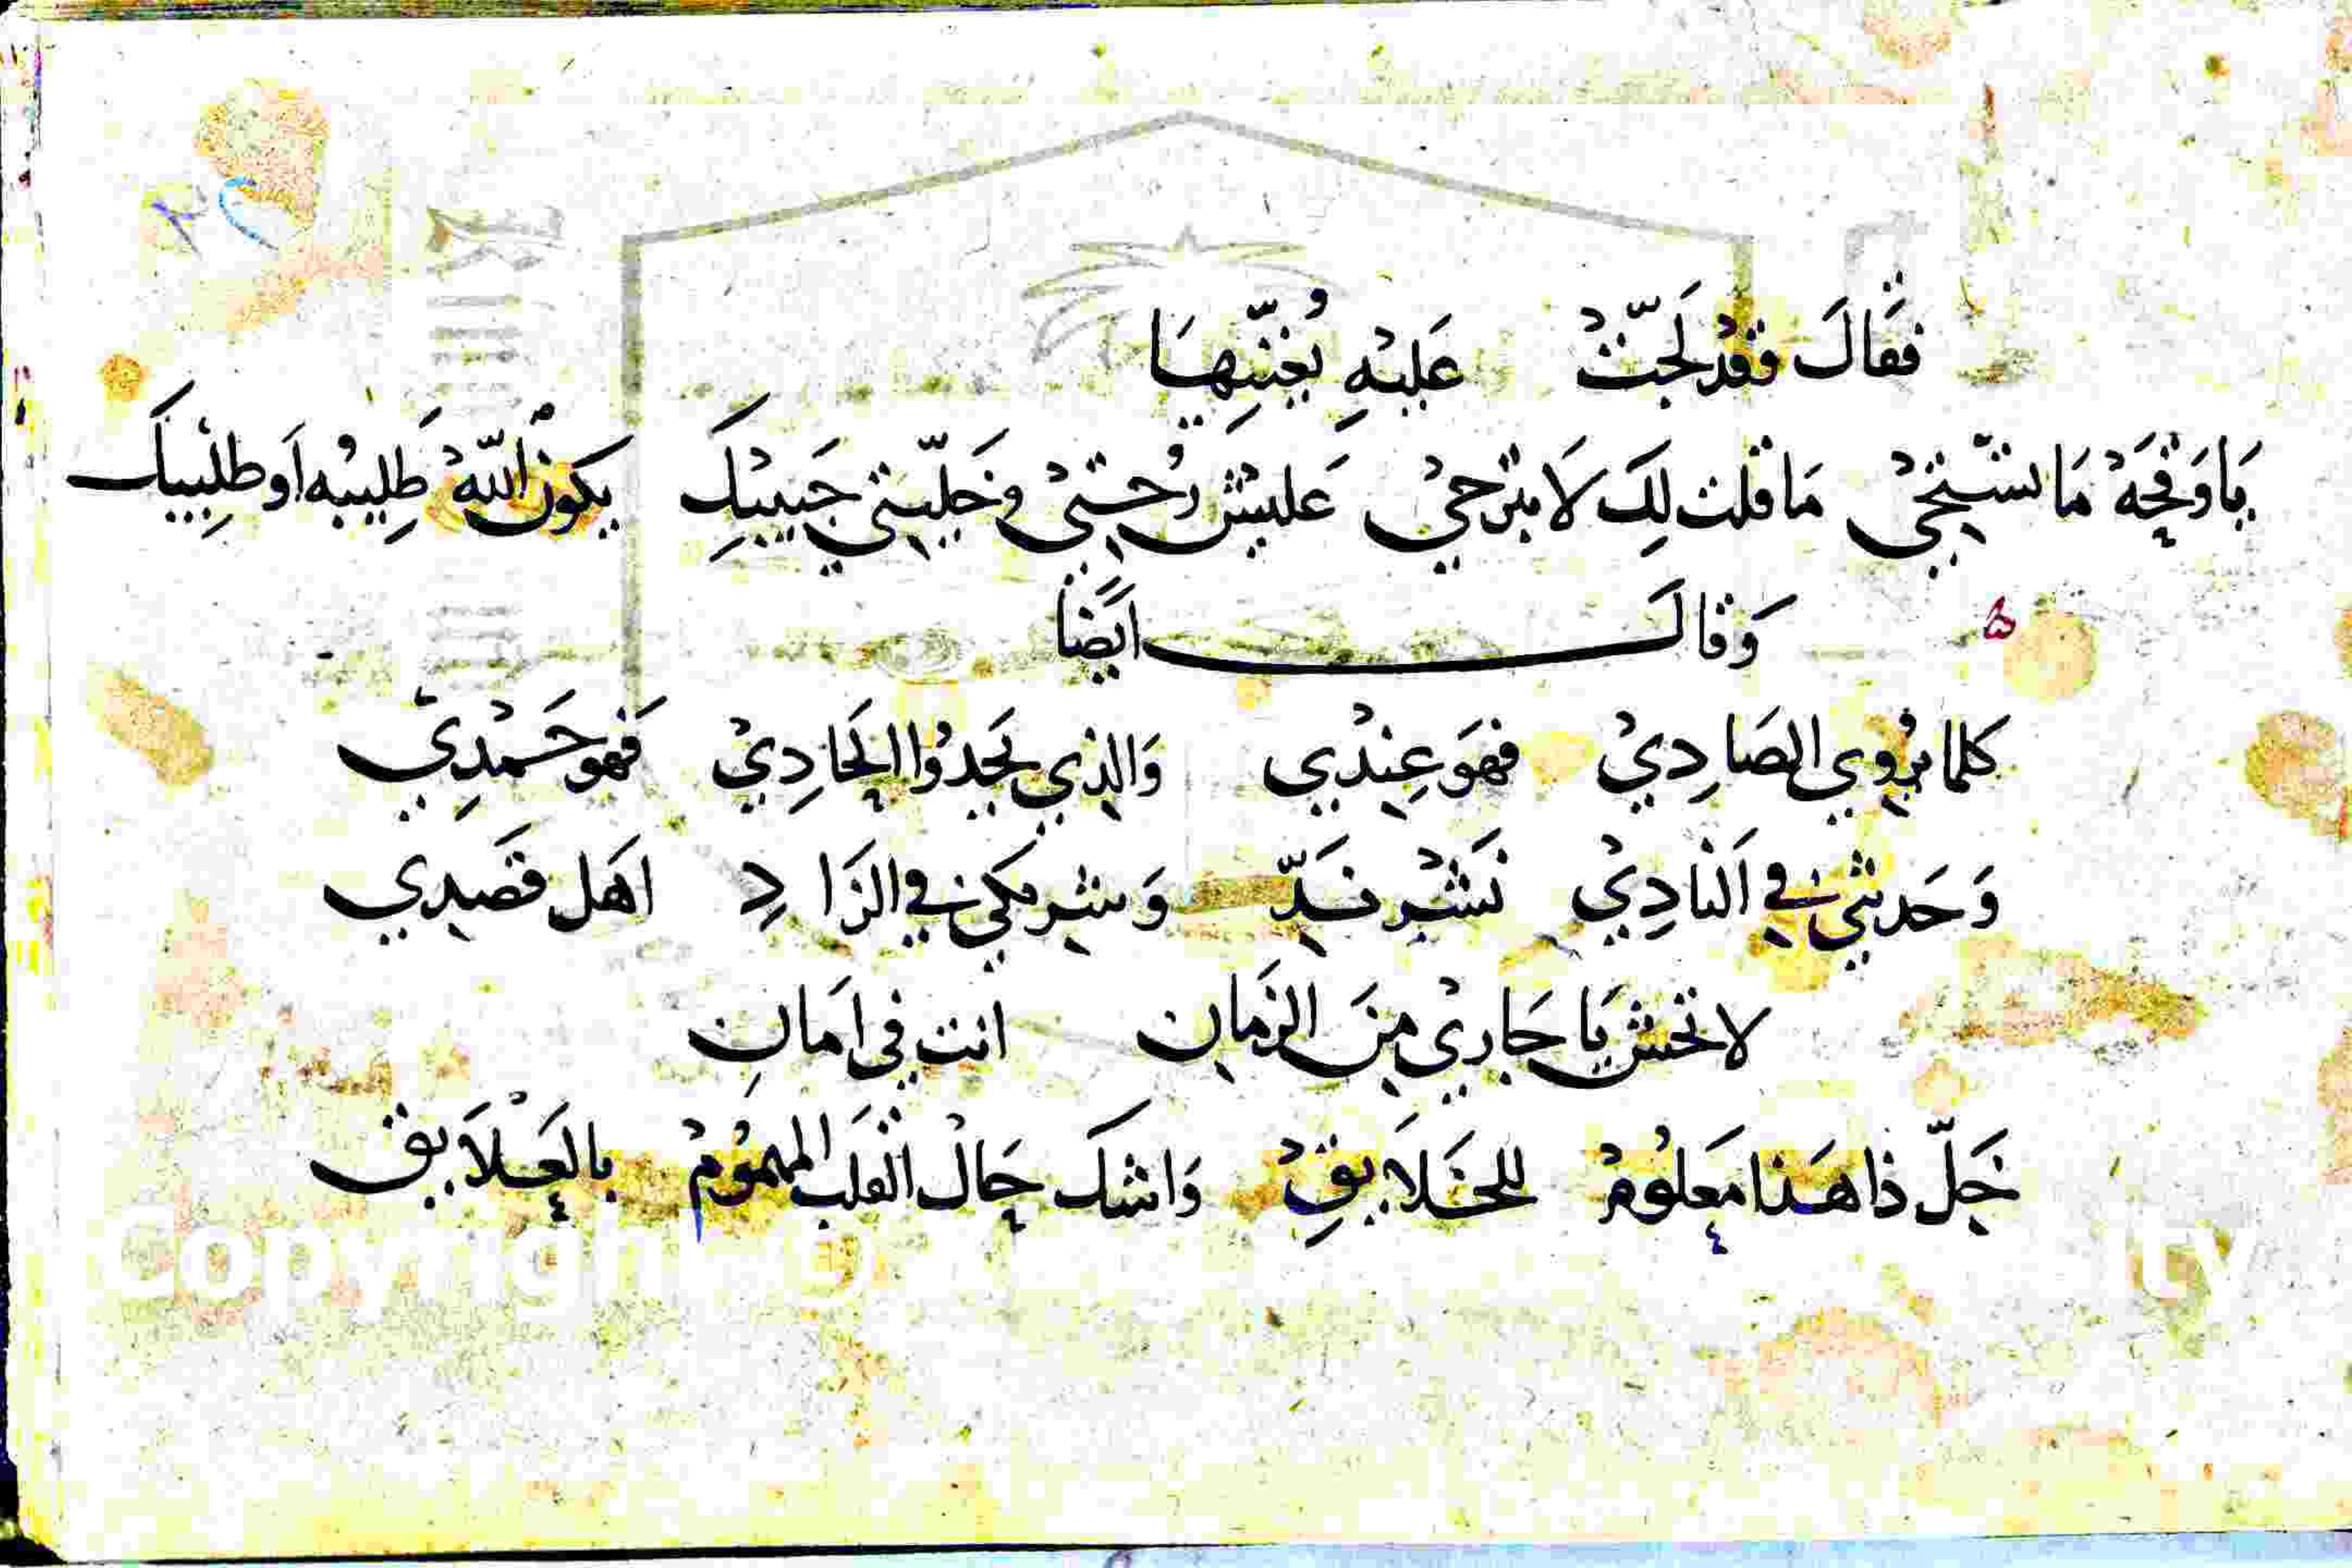 فقَالَ فقدْ لَجّتْ عَليْهِ يُغنّيهَا
يَا وَقحَهْ مَا تسْتحِيْ مَا قلت لِكِ لَا تبرَحيْ عَليشْ رُحتيْ وخَليّتي حَبيبكِ يكونْ اللهْ طَلِيبُه اَو طلِيبكَ
وَقالَ ايَضًا
كلما يرْوي الصَادِيْ فهوَ عِنْدي وَالذي يَحدُوا الحَادِيْ فهو حَمْدِيّ
وَحَديثي في اَلنادِيْ نَشْر نَدّ وَشريكي في الزَادِ اهَل قَصدي
لا تخش يَا جَاريْ مِنَ الزمَان انت في اَمَانِ
خَلّ ذا هَذا مَعلُومْ للخَلَايقِ وَاشك حَالْ القلب المهمُومْ بالعَلَايق